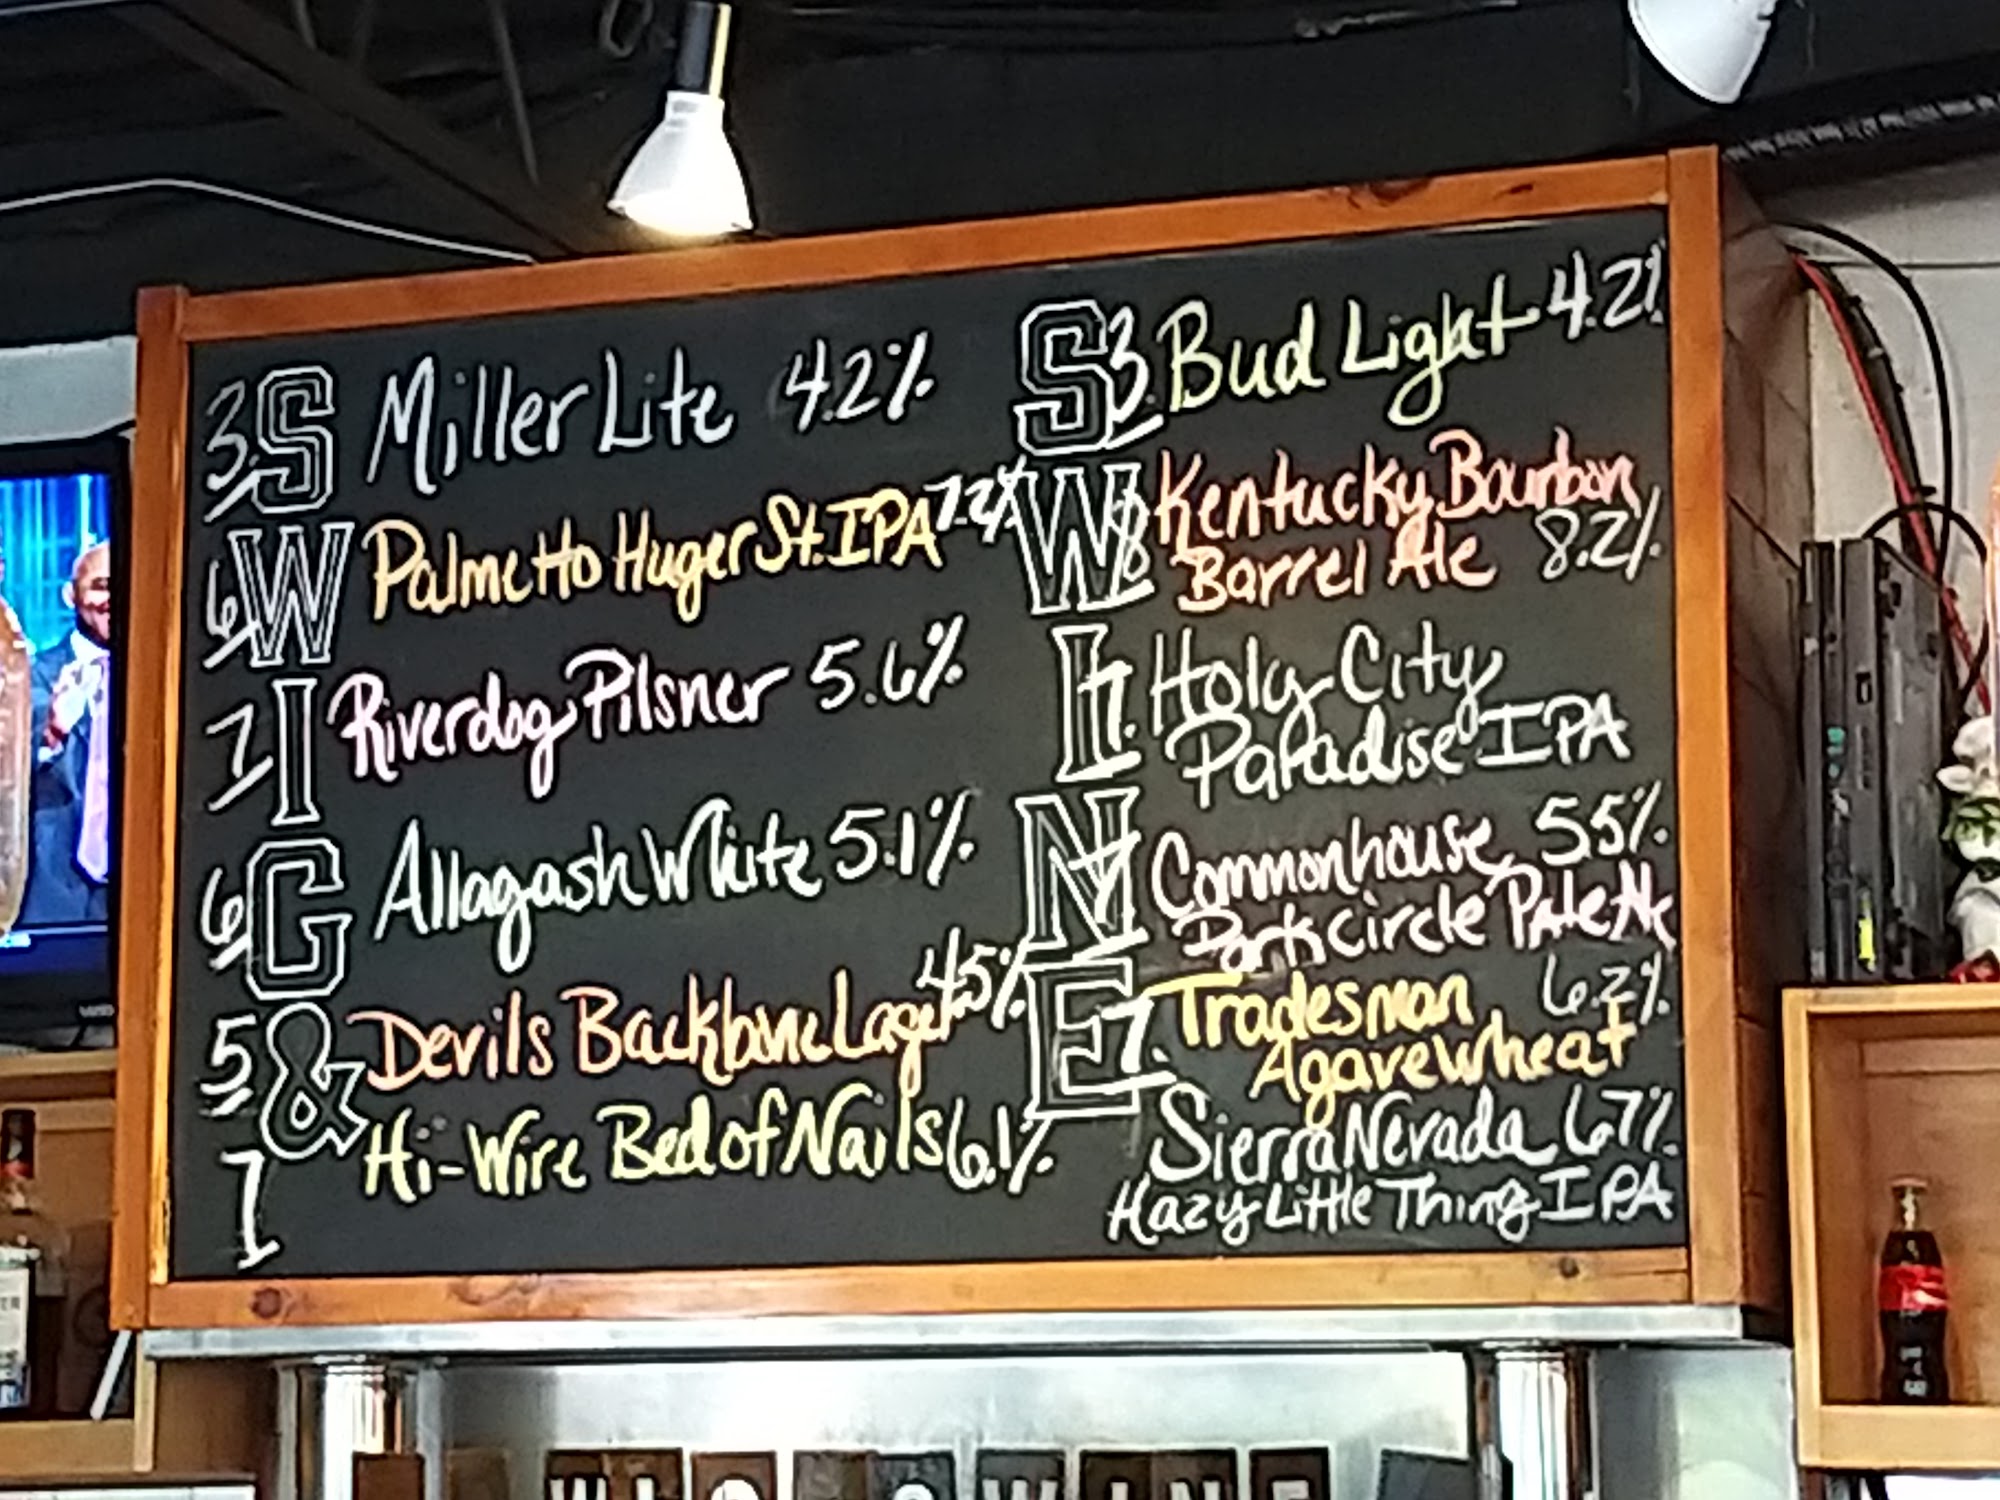 3. S Miller Lite 4.2%
6 W Palmetto Huger St. IPA 7.2%
7 I Riverdog Pilsner 5.6%
6 G Allagash White 5.1%
5 & Devils Backbone Lager 4.5%
7 Hi-Wire Bed of Nails 6.1%
S 3. Bud Light 4.2%
W 8 Kentucky Bourbon
Barrel Ale 8.2%
I 7. Holy City
Paradise IPA
N 7. Commonhouse 5.5%
Park circle Pale Ale
E 7. Tradesman 6.2%
Agave Wheat
Sierra Nevada 6.7%
Hazy Little Thing IPA